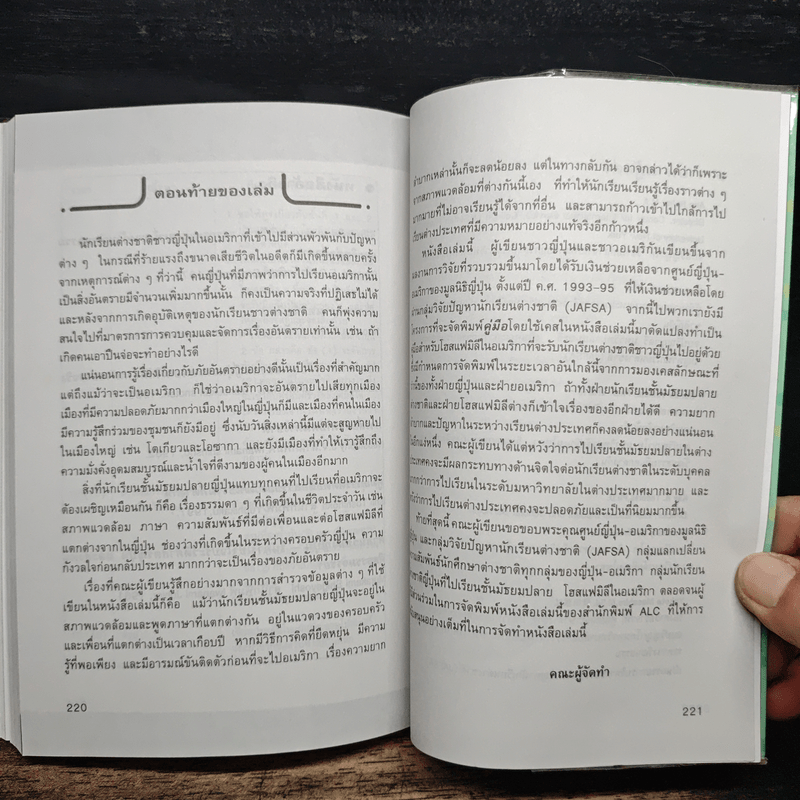 ตอนท้ายของเล่ม
นักเรียนต่างชาติชาวญี่ปุ่นในอเมริกาที่เข้าไปมีส่วนพัวพันกับปัญหา
ต่าง ๆ ในกรณีที่ร้ายแรงถึงขนาดเสียชีวิตในอดีตก็มีเกิดขึ้นหลายครั้ง
จากเหตุการณ์ต่าง ๆ ที่ว่านี้ คนญี่ปุ่นที่มีภาพว่าการไปเรียนอเมริกานั้น
เป็นสิ่งอันตรายมีจำนวนเพิ่มมากขึ้นนั้น ก็คงเป็นความจริงที่ปฏิเสธไม่ได้
และหลังจากการเกิดอุบัติเหตุของนักเรียนชาวต่างชาติ คนก็พุ่งความ
สนใจไปที่มาตรการการควบคุมและจัดการเรื่องอันตรายเท่านั้น เช่น ถ้า
เกิดคนเอาปืนจ่อจะทำอย่างไรดี
แน่นอนการรู้เรื่องเกี่ยวกับภัยอันตรายอย่างดีนั้นเป็นเรื่องที่สำคัญมาก
แต่ถึงแม้ว่าจะเป็นอเมริกา ก็ใช่ว่าอเมริกาจะอันตรายไปเสียทุกเมือง
เมืองที่มีความปลอดภัยมากกว่าเมืองใหญ่ในญี่ปุ่นก็มีและเมืองที่คนในเมือง
มีความรู้สึกร่วมของชุมชนก็ยังมีอยู่ ซึ่งนับวันสิ่งเหล่านี้มีแต่จะสูญหายไป
ในเมืองใหญ่ เช่น โตเกียวและโอซากา และยังมีเมืองที่ทำให้เรารู้สึกถึง
ความมั่งคั่งอุดมสมบูรณ์และน้ำใจที่ดีงามของผู้คนในเมืองอีกมาก
สิ่งที่นักเรียนชั้นมัธยมปลายญี่ปุ่นแทบทุกคนที่ไปเรียนที่อเมริกาจะ
ต้องเผชิญเหมือนกัน ก็คือ เรื่องธรรมดา ๆ ที่เกิดขึ้นในชีวิตประจำวัน เช่น
สภาพแวดล้อม ภาษา ความสัมพันธ์ที่มีต่อเพื่อนและต่อโฮสแฟมิลีที่
แตกต่างจากในญี่ปุ่น ช่องว่างที่เกิดขึ้นในระหว่างครอบครัวญี่ปุ่น ความ
กังวลใจก่อนกลับประเทศ มากกว่าจะเป็นเรื่องของภัยอันตราย
เรื่องที่คณะผู้เขียนรู้สึกอย่างมากจากการสำรวจข้อมูลต่าง ๆ ที่ใช้
เขียนในหนังสือเล่มนี้ก็คือ แม้ว่านักเรียนชั้นมัธยมปลายญี่ปุ่นจะอยู่ใน
สภาพแวดล้อมและพูดภาษาที่แตกต่างกัน อยู่ในแวดวงของครอบครัว
และเพื่อนที่แตกต่างเป็นเวลาเกือบปี หากมีวิธีการคิดที่ยืดหยุ่น มีความ
รู้ที่พอเพียง และมีอารมณ์ขันติดตัวก่อนที่จะไปอเมริกา เรื่องความยาก
220
ลำบากเหล่านั้นก็จะลดน้อยลง แต่ในทางกลับกัน อาจกล่าวได้ว่าก็เพราะ
จากสภาพแวดล้อมที่ต่างกันนี้เอง ที่ทำให้นักเรียนเรียนรู้เรื่องราวต่าง ๆ
มากมายที่ไม่อาจเรียนรู้ได้จากที่อื่น และสามารถก้าวเข้าไปใกล้การไป
เรียนต่างประเทศที่มีความหมายอย่างแท้จริงอีกก้าวหนึ่ง
หนังสือเล่มนี้ ผู้เขียนชาวญี่ปุ่นและชาวอเมริกันเขียนขึ้นจาก
ผลงานการวิจัยที่รวบรวมขึ้นมาโดยได้รับเงินช่วยเหลือจากศูนย์ญี่ปุ่น-
อเมริกาของมูลนิธิญี่ปุ่น ตั้งแต่ปี ค.ศ. 1993-95 ที่ให้เงินช่วยเหลือโดย
ผ่านกลุ่มวิจัยปัญหานักเรียนต่างชาติ (JAFSA) จากนี้ไปพวกเรายังมี
โครงการที่จะจัดพิมพ์คู่มือโดยใช้เคสในหนังสือเล่มนี้มาดัดแปลงทำเป็น
คู่มือสำหรับโฮสแฟมิลีในอเมริกาที่จะรับนักเรียนต่างชาติชาวญี่ปุ่นไปอยู่ด้วย
มีกำหนดการจะจัดพิมพ์ในระยะเวลาอันใกล้นี้จากการมองเคสลักษณะที่
นี้ของทั้งฝ่ายญี่ปุ่นและฝ่ายอเมริกา ถ้าทั้งฝ่ายนักเรียนชั้นมัธยมปลาย
ต่างชาติและฝ่ายโฮสแฟมิลีต่างก็เข้าใจเรื่องของอีกฝ่ายได้ดี ความยาก
ลำบากและปัญหาในระหว่างเรียนต่างประเทศก็คงลดน้อยลงอย่างแน่นอน
อีกแง่หนึ่ง คณะผู้เขียนได้แต่หวังว่าการไปเรียนชั้นมัธยมปลายในต่าง
ประเทศคงจะมีผลกระทบทางด้านจิตใจต่อนักเรียนต่างชาติในระดับบุคคล
มากกว่าการไปเรียนในระดับมหาวิทยาลัยในต่างประเทศมากมาย และ
หวังว่าการไปเรียนต่างประเทศคงจะปลอดภัยและเป็นที่นิยมมากขึ้น
ท้ายที่สุดนี้ คณะผู้เขียนขอขอบพระคุณศูนย์ญี่ปุ่น-อเมริกาของมูลนิธิ
ญี่ปุ่น และกลุ่มวิจัยปัญหานักเรียนต่างชาติ (JAFSA) กลุ่มแลกเปลี่ยน
ความสัมพันธ์นักศึกษาต่างชาติทุกกลุ่มของญี่ปุ่น-อเมริกา กลุ่มนักเรียน
ต่างชาติญี่ปุ่นที่ไปเรียนชั้นมัธยมปลาย โฮสแฟมิลีในอเมริกา ตลอดจนผู้
มีส่วนร่วมในการจัดพิมพ์หนังสือเล่มนี้ของสำนักพิมพ์ ALC ที่ให้การ
สนับสนุนอย่างเต็มที่ในการจัดทำหนังสือเล่มนี้
คณะผู้จัดทำ
221